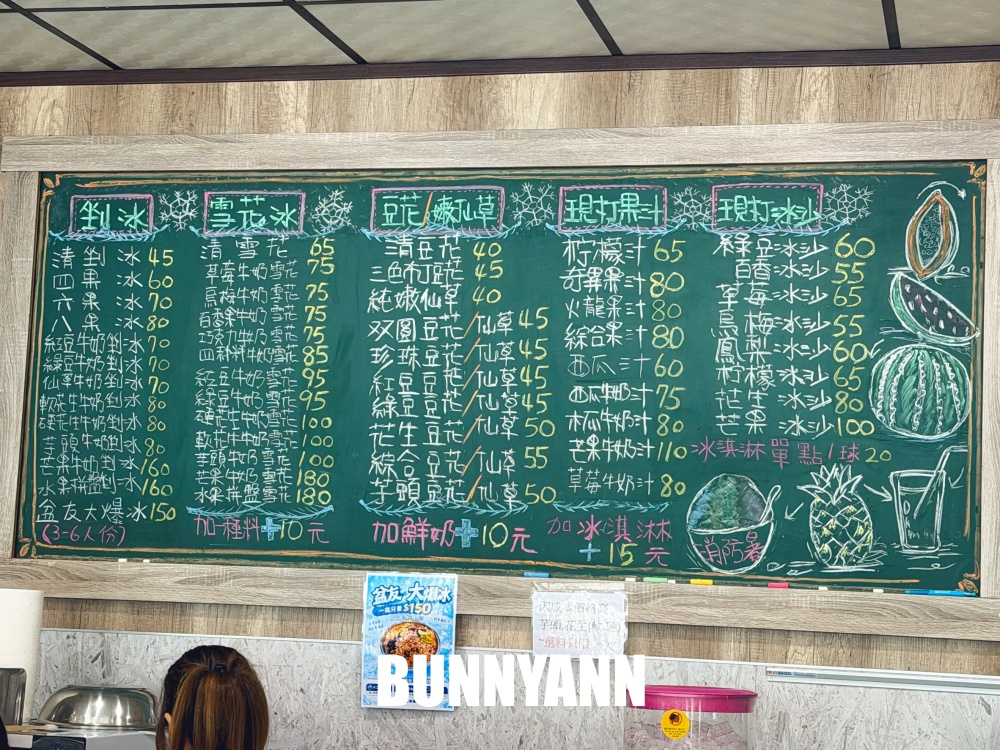 剉冰
清剉冰45
四果冰60
六果冰70
八果冰80
紅豆牛奶剉冰70
綠豆牛奶剉冰70
仙草牛奶剉冰70
軟花生牛奶剉冰80
硬花生牛奶剉冰80
芋頭牛奶剉冰80
芒果牛奶剉冰160
水果拼盤剉冰160
盆友大爆冰150
(3-6人份)
雪花冰
清雪花65
草莓牛奶雪花75
烏梅牛奶雪花75
百香果牛奶雪花75
巧克力牛奶雪花75
四科牛奶雪花85
紅豆牛奶雪花95
綠豆牛奶雪花95
硬花生牛奶雪花100
軟花生牛奶雪花100
芋頭牛奶雪花100
芒果牛奶雪花180
水果拼盤雪花180
加一種料+10元
豆花/嫩仙草
清豆花40
三色布丁豆花45
純嫩仙草40
双圓豆花/仙草45
珍珠豆花/仙草45
紅豆豆花/仙草45
綠豆豆花/仙草45
花生豆花/仙草50
綜合豆花/仙草55
芋頭豆花/仙草50
加鮮奶+10元
現打果汁
檸檬汁65
奇異果汁80
火龍果汁80
綜合果汁80
西瓜汁60
西瓜牛奶汁75
木瓜牛奶汁80
芒果牛奶汁110
草莓牛奶汁80
加冰淇淋
+15元
現打冰沙
綠豆冰沙60
百香冰沙55
草莓冰沙65
烏梅冰沙55
鳳梨冰沙60
檸檬冰沙65
花生冰沙80
芒果冰沙100
冰淇淋單點1球20
消防暑
盆友大爆冰
一盆只要$150
芋頭.花生(軟.硬)
BUNNYANN